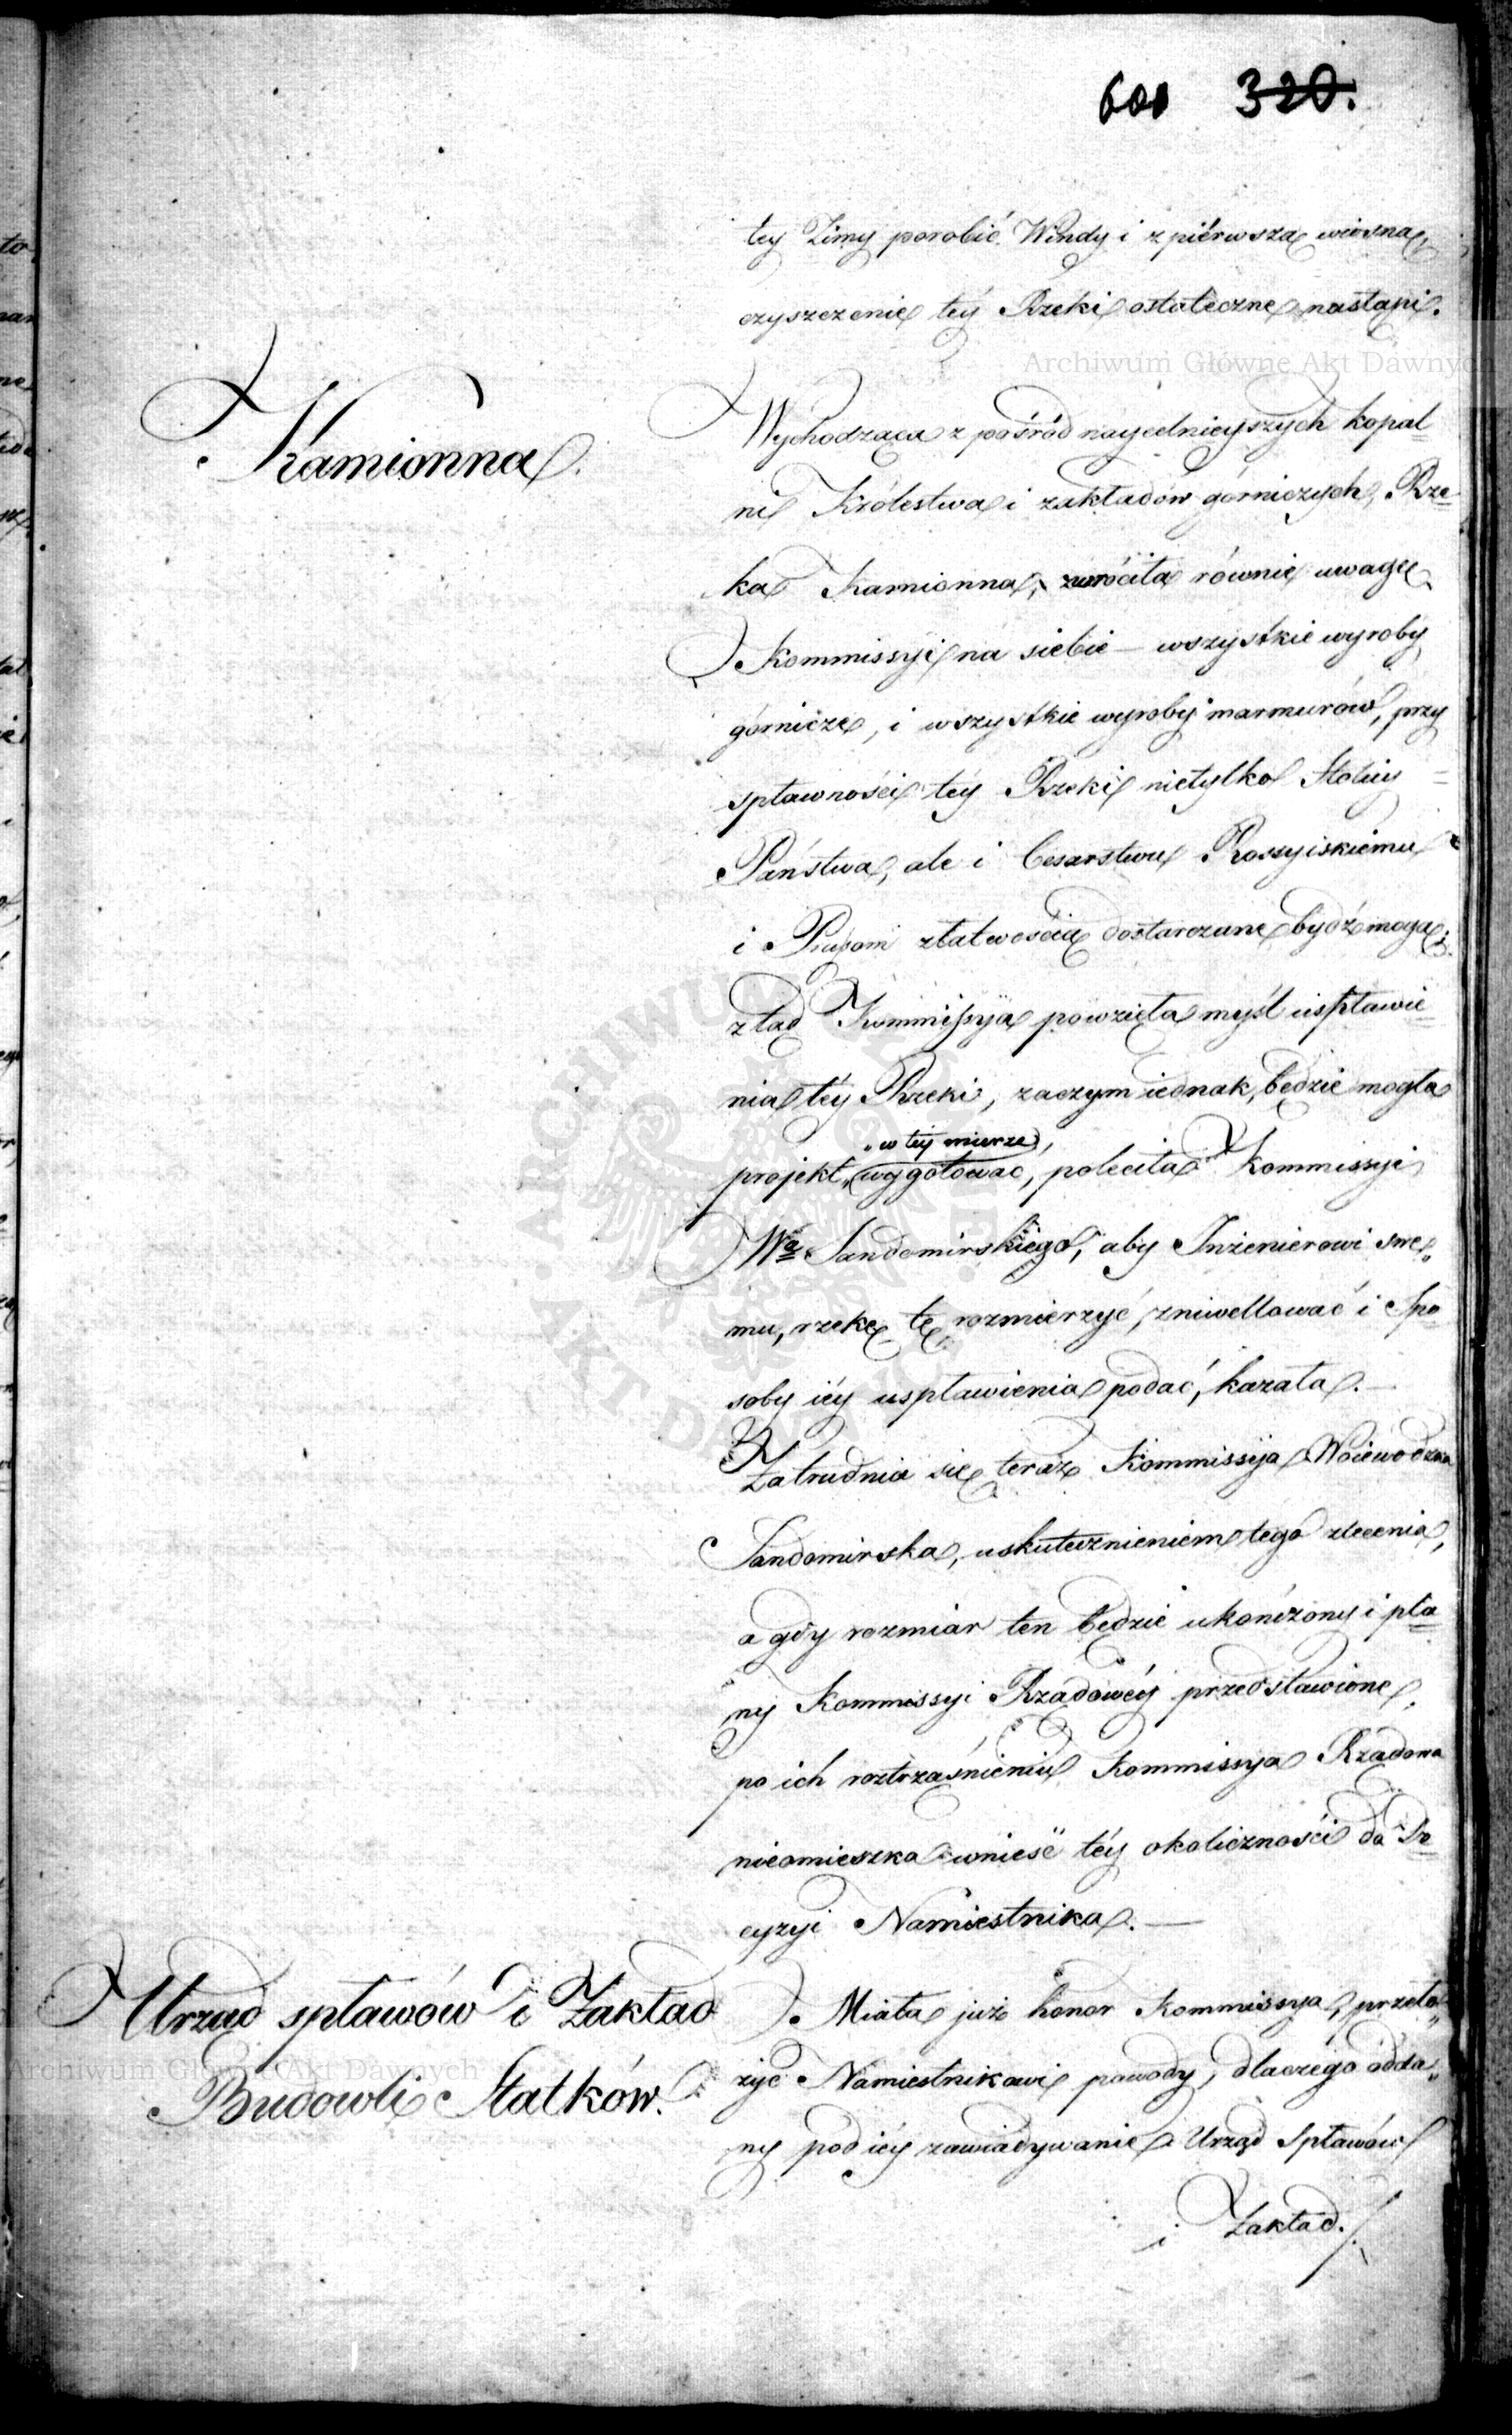 600 320.
téy Zimy porobić Windy i z piérwszą wiosną,
czyszczenie téy Rzeki ostateczne nastąpi.
Kamionna.
Wychodząca z pośród naycelnieyszych kopal=
ni Królestwa i zakładów górniczych, Rze=
ka Kamionna, zwróciła równie uwagę
Kommissyi na siebie – wszystkie wyroby
górnicze, i wszystkie wyroby marmurów, przy
spławności téy Rzeki nietylko Stolicy =
Państwa, ale i Cesarstwu Rossyiskiemu
i Prusom złatwością dostarczane bydź mogą;
ztąd Kommissyja powzięła myśl uspławie=
nia téy Rzeki, zaczym iednak, będzie mogła
„w téy mierze,
projekt „wygotować, poleciła Kommissyi
Wa Sandomirskiego, aby Inżenierowi swe„
mu, rzekę tę rozmierzyć, zniwellować i Spo=
soby iéy uspławienia podać, kazała. –
Zatrudnia się teraz Kommissyja Woiewodzka
Sandomirska, uskutecznieniem tego zlecenia,
a gdy rozmiar ten będzie ukończony i pla=
ny Kommissyi Rządowéy przedstawione,
po ich roztrząśnieniu Kommissya Rządowa
nieomieszka wnieść téy okoliczności do De=
cyzyi Namiestnika. —
Urząd spławów i Zakład
Budowli Statków.
Miała już honor Kommissya, przeło„
żyć Namiestnikowi powody, dlaczego odda„
ny pod iéy zawiadywanie Urząd Spławów
i Zakład.
Archiwum Główne Akt Dawnych
Archiwum Główne Akt Dawnych